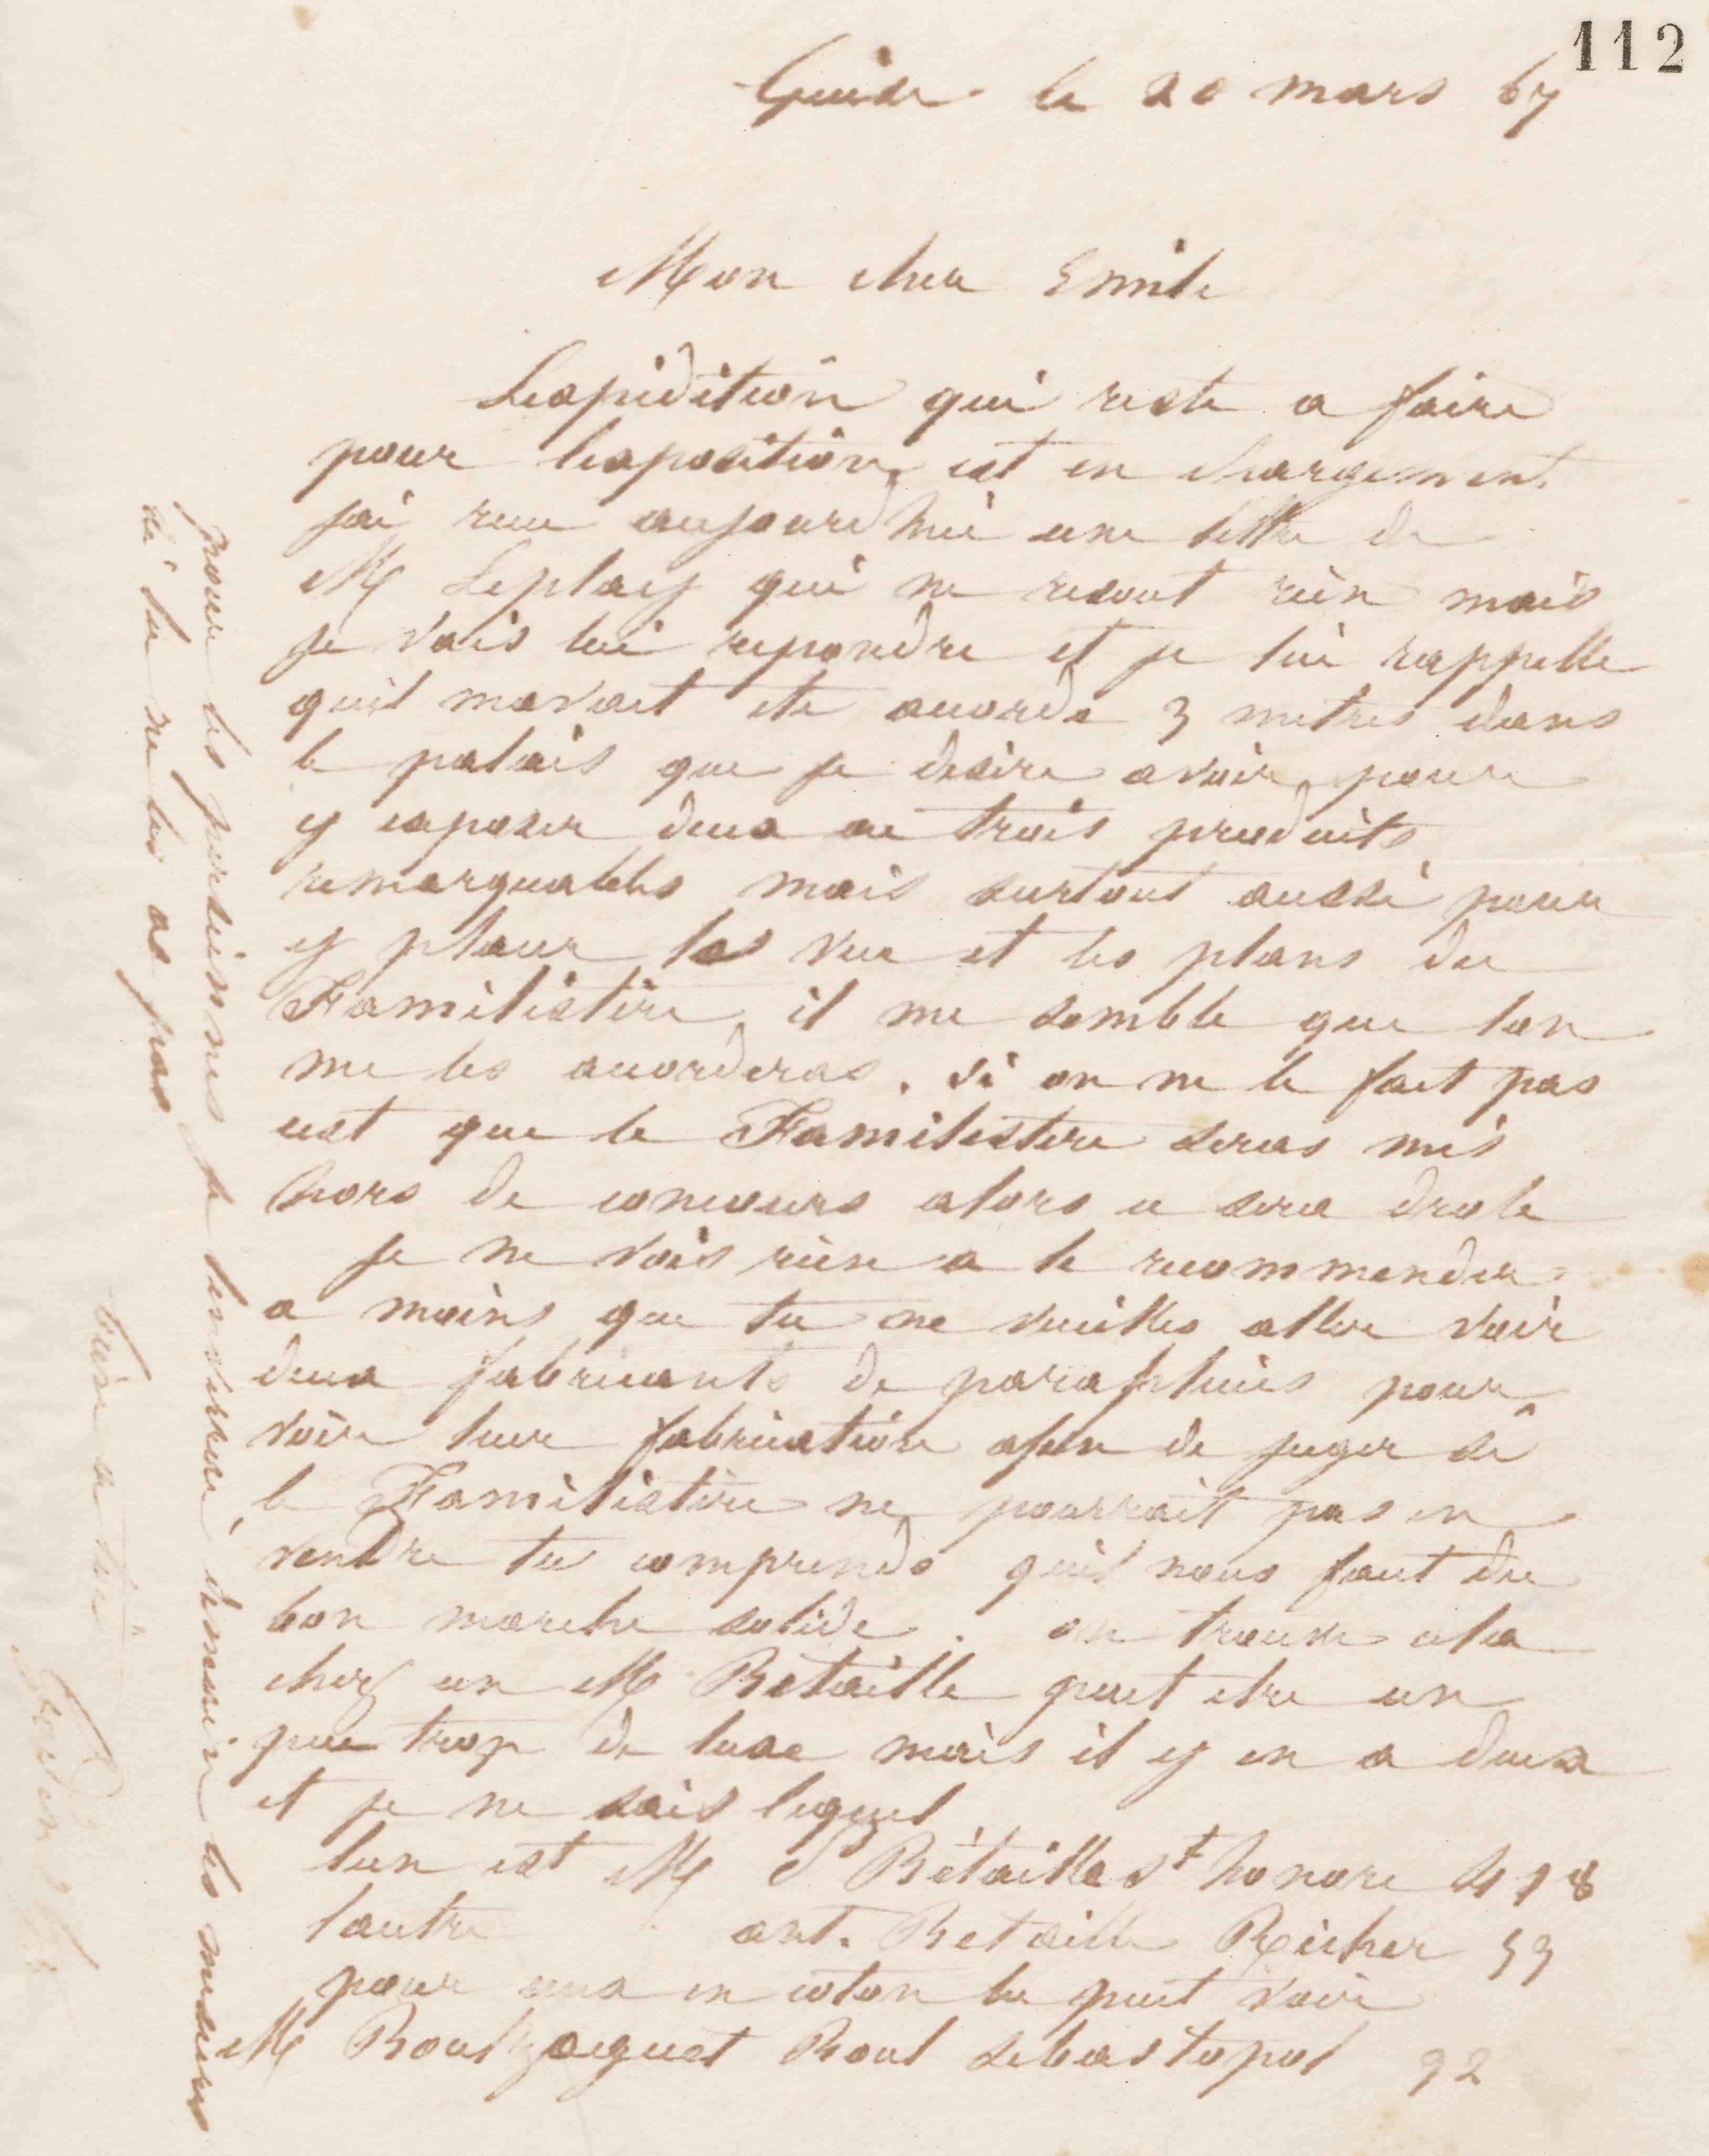 112
Guise le 20 mars 67
Mon cher Emile
Lexpidition qui reste a faire
pour lexposition est en chargement.
jai recu aujourdhui une lettre de
M Leplay qui ne resout rien mais
je vais lui repondre et je lui rappelle
quil mavait ete accorde 3 metres dans
le palais que je desire avoir pour
y exposer deux ou trois produits
remarquables mais surtout aussi pour
y placer las vue et les plans du
Familistère il me semble que lon
me les accorderas. si on ne le fait pas
cest que le Familistere seras mis
hors de concours alors ce sera drole
je ne vois rien a te recommender
a moins que tu ne veuilles aller voir
deux fabricants de parapluies pour
voir leur fabrication afin de juger si
le Familistère ne pourrait pas en
vendre tu comprends quil nous faut du
bon marche solide. on trouve cela
chez un M Betaille peut etre un
peu trop de luxe mais il y en a deux
et je ne sais lequel
lun est M Bétaille St honore 418
lautre ant. Betaille Richer 53
pour ceux en coton tu peut voir
M Boul Sebastopol 92
pour les persiennes je tenverrai demain les mesures
si tu ne les as pas
tout a toi
Godin